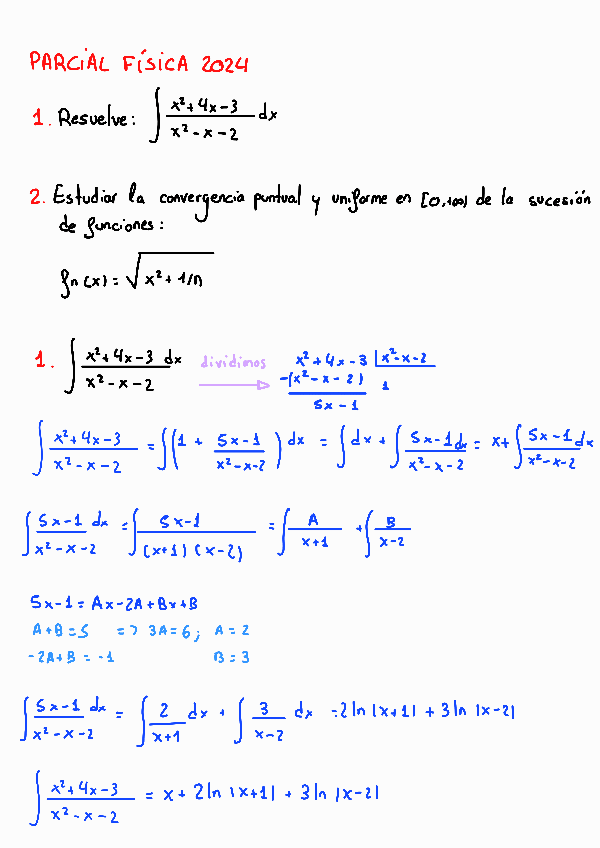 PARCIAL FÍSICA 2024
1. Resuelve: ∫ (x²+4x-3)/(x²-x-2) dx
2. Estudiar la convergencia puntual y uniforme en [0,+∞) de la sucesión
de funciones:
fn(x) = √(x²+1/n)
1. ∫ (x²+4x-3)/(x²-x-2) dx dividimos → x²+4x-3 |x²-x-2
-(x²-x-2) 1
5x-1
∫ (x²+4x-3)/(x²-x-2) = ∫(1 + (5x-1)/(x²-x-2)) dx = ∫dx + ∫ (5x-1)/(x²-x-2) dx = x+∫ (5x-1)/(x²-x-2) dx
∫ (5x-1)/(x²-x-2) dx = ∫ (5x-1)/((x+1)(x-2)) = ∫ A/(x+1) + ∫ B/(x-2)
5x-1 = Ax-2A+Bx+B
A+B=5 => 3A=6; A=2
-2A+B=-1 B=3
∫ (5x-1)/(x²-x-2) dx = ∫ 2/(x+1) dx + ∫ 3/(x-2) dx = 2ln|x+1| + 3ln|x-2|
∫ (x²+4x-3)/(x²-x-2) = x + 2ln|x+1| + 3ln|x-2|